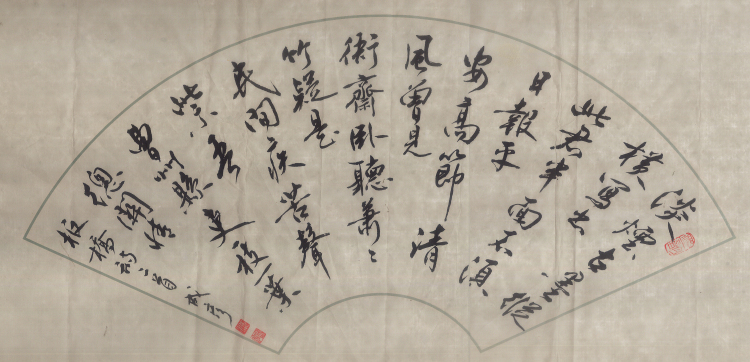 淡煙古墨縱
橫寫出
此君半面不須
日報平
安高節清
風曾見
衙齋臥聽蕭〻
竹疑是
民間疾苦聲
些小吾
曹州縣吏一枝一葉
總關情
板橋詩二首